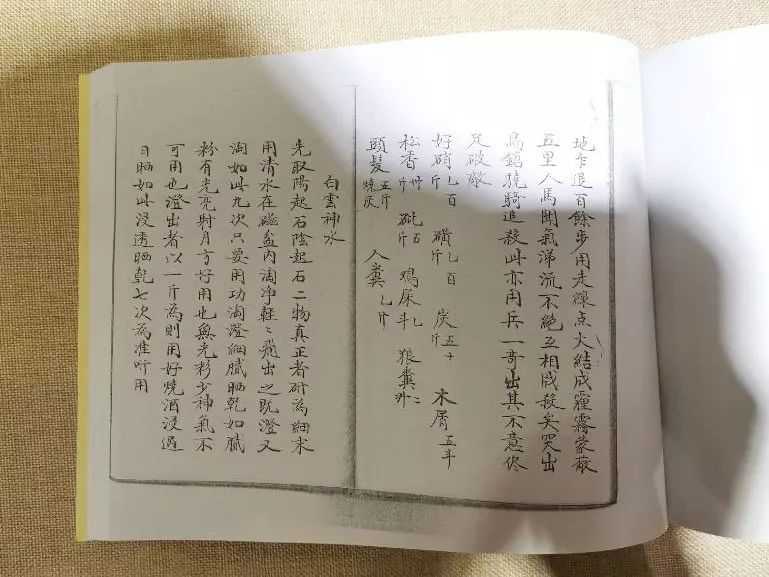 地乍退百餘步用走線点火結成霾霧蒙蔽
五里人馬聞氣涕流不絕互相成殺矣突出
鳥鎗驍騎追殺此亦用兵一哥出其不意侭
足破敵
好硝七百斤 磺七百斤 炭五十斤 木屑五斗
松香卅斤 砒五斤 鳩屎七斗 狼糞二升
頭髮五斤燒灰 人糞七斤
白雲神水
先取陽起石陰起石二物真正者研為細末
用清水在磁盆內淘净軽〻飛出之既澄又
淘如此九次只要用功淘澄細膩晒乾如膩
粉有光亮射月方好用也無光彩少神氣不
可用也澄出者以一斤為則用好燒酒浸過
日晒如此浸透晒乾七次為准听用